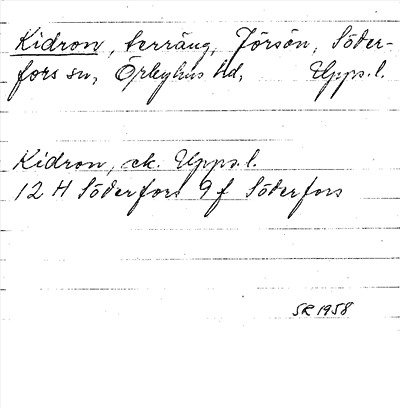 Kidron, terräng, Jörsön, Söder-
fors sn, Örbyhus hd, Upps.l.
Kidron, ek. Upps.l.
12 H Söderfors 9 f Söderfors
SR 1958